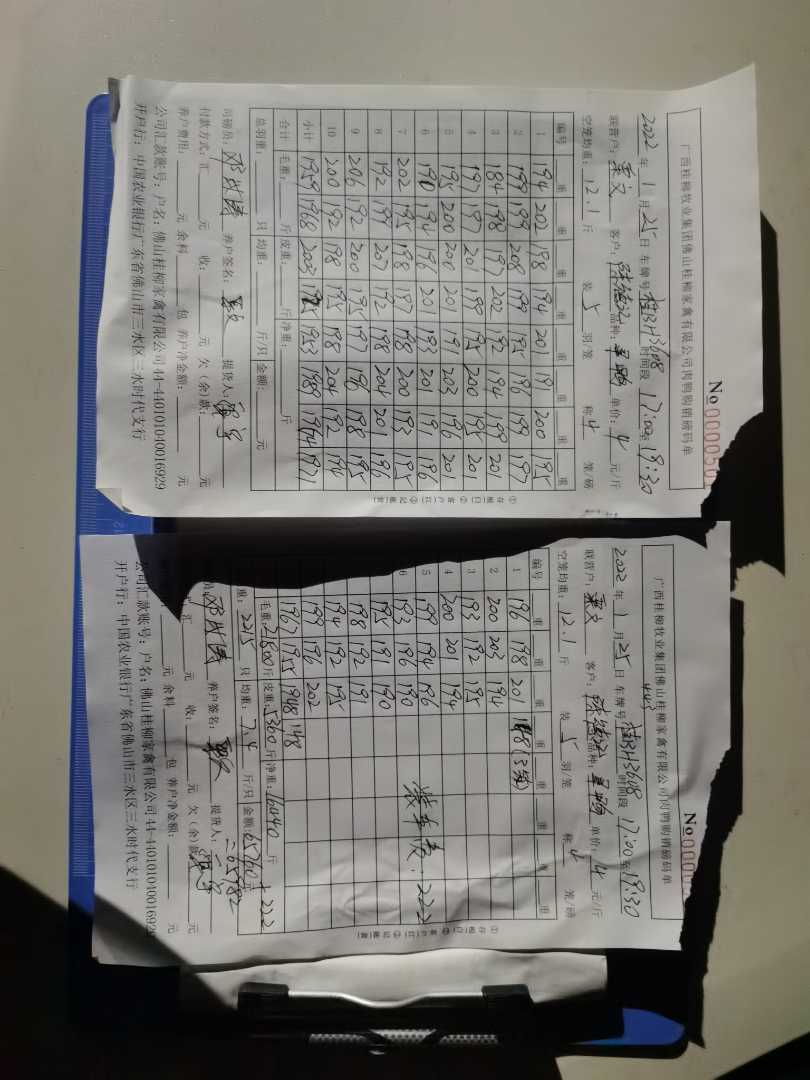 广西桂柳牧业集团佛山桂柳家禽有限公司肉鸭购销磅码单
No 0000501
2022 年 1 月 25 日 车牌号 桂BH3608 时间段 17:00至18:30
联营户: 客户: 品种: 单价: 4 元/斤
空笼均重: 12.1 斤 装 5 羽/笼 称 4 笼/磅
编号 重 重 重 重 重 重 重 重
1 194 202 198 194 201 191 200 195
2 199 199 208 199 195 196 199 197
3 184 198 197 202 192 194 199 201
4 197 197 201 199 195 200 195 201
5 195 200 200 201 191 203 196 201
6 190 194 196 201 193 201 191 196
7 202 195 198 197 198 200 193 195
8 192 199 207 192 198 204 201 196
9 206 192 200 195 197 196 198 195
10 200 192 198 195 198 204 192 194
小计 1959 1968 2003 1975 1953 1989 1964 1971
合计 毛重: 斤 皮重: 斤 净重: 斤
总羽量: 只 均重: 斤/只 金额: 元
司磅员: 养户签名: 提货人:
付款方式: 汇 元 收: 元 欠(余)款: 元
养户费用: 元 余料 包 养户净金额: 元
公司汇款账号: 户名: 佛山桂柳家禽有限公司 44-440101040016929
开户行: 中国农业银行广东省佛山市三水区三水时代支行
①存根(白) ②客户(红) ③记账(黄)
广西桂柳牧业集团佛山桂柳家禽有限公司肉鸭购销磅码单
No 0000
443
2022 年 1 月 25 日 车牌号 桂BH3608 时间段 17:00至18:30
联营户: 客户: 品种: 单价: 4 元/斤
空笼均重: 12.1 斤 装 5 羽/笼 称 4 笼/磅
编号 重 重 重 重 重 重 重 重
1 196 198 201 148(3笼)
2 200 203 194
3 193 192 195
4 200 201 194
5 199 194 196
6 193 196 190
195 191 190
198 192 191
194 192 195
199 196 202
1967 1955 1948 148
装车费: 222
毛重: 21800 斤 皮重: 5360 斤 净重: 16440 斤
重: 2215 只 均重: 7.4 斤/只 金额: 65760 元 + 222
=65982
养户签名: 提货人:
汇 元 收: 元 欠(余)款 元
元 余料 包 养户净金额: 元
公司汇款账号: 户名: 佛山桂柳家禽有限公司 44-44010104001692
开户行: 中国农业银行广东省佛山市三水区三水时代支行
①存根(白) ②客户(红) ③记账(黄)